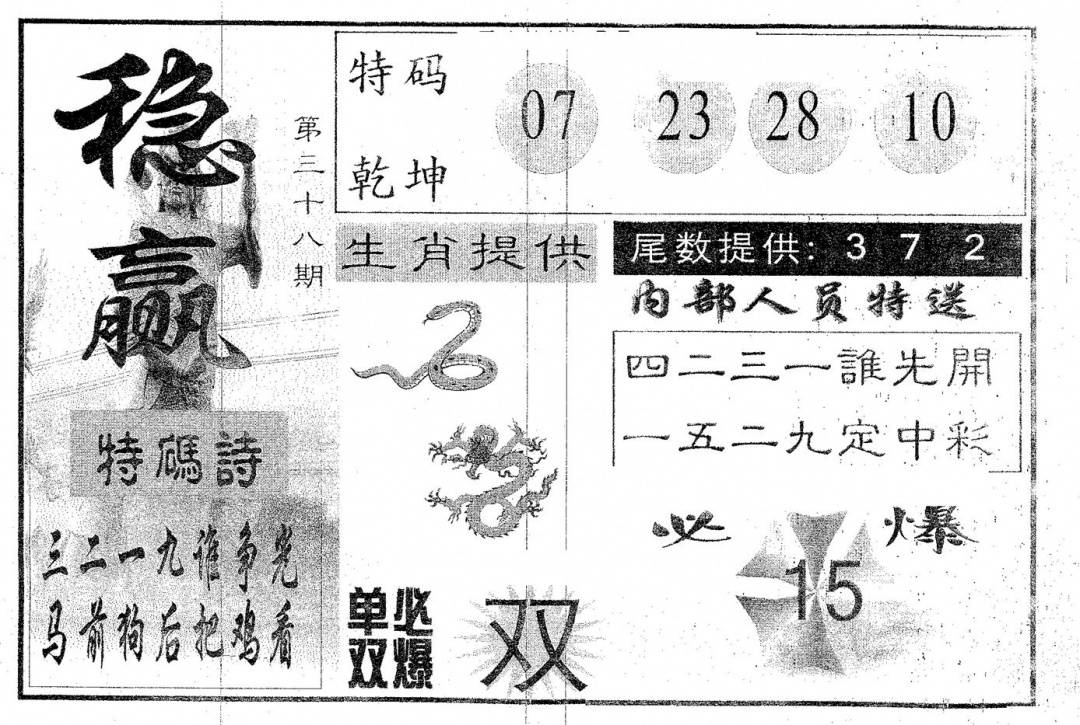 稳赢
第三十八期
特码诗
三二一九谁争光
马前狗后把鸡看
特码
乾坤
07 23 28 10
生肖提供
单双必爆
双
尾数提供: 3 7 2
内部人员特送
四二三一誰先開
一五二九定中彩
必爆
15